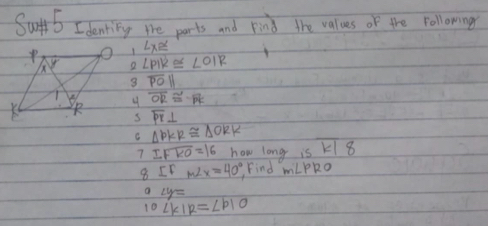 SW#5 Identify the parts and find the values of the following
P O
x y
I
K R
1 ∠x≅
2 ∠PIK ≅ ∠OIR
3 PO ||
4 OR ≅ PK
5 PR ⊥
6 ΔPKR ≅ ΔORK
7 IF KO = 16 how long is KI 8
8 IF m∠x = 40°, Find m∠PRO
9 ∠y=
10 ∠KIR = ∠PIO